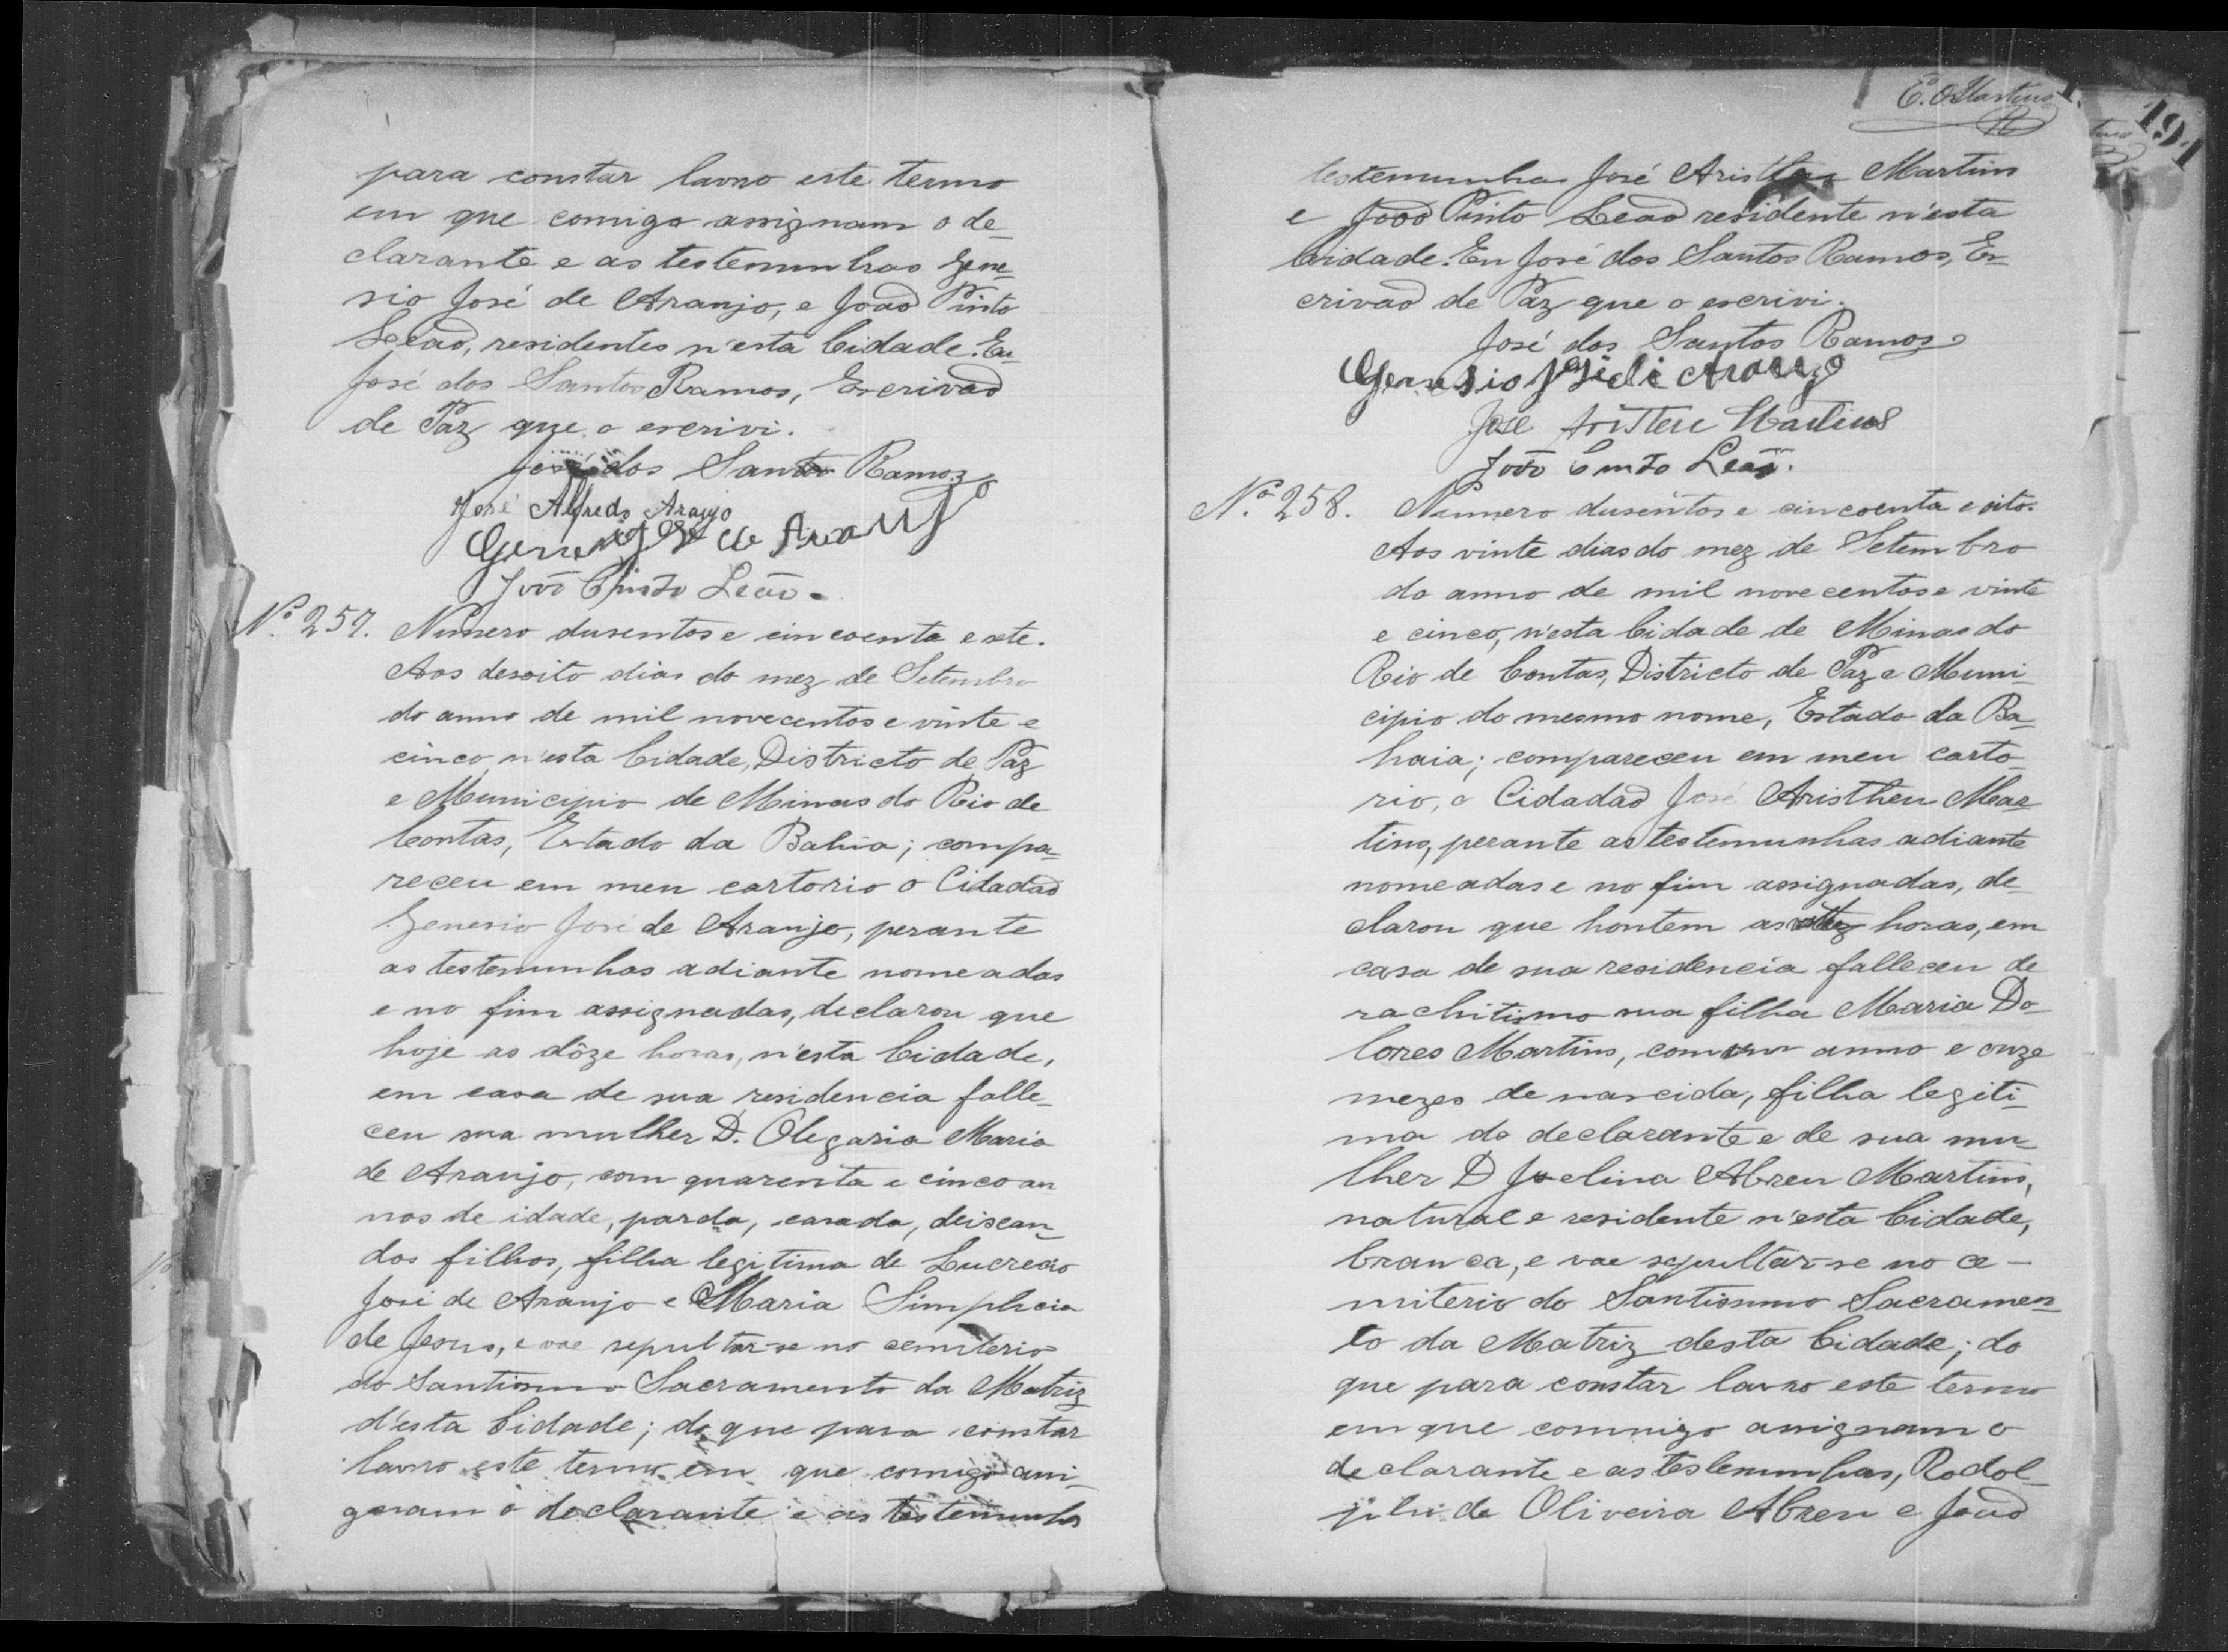 para constar lavro este termo
em que comigo assignam o de-
clarante e as testemunhas Gene-
sio José de Araujo, e João Pinto
Leão, residentes n'esta Cidade. Eu
José dos Santos Ramos, Escrivão
de Paz que o escrivi.
José dos Santos Ramos
José Alfredo Araujo
Genesio José de Araujo
João Pinto Leão.
Nº 257. Numero dusentos e cincoenta e sete.
Aos desoito dias do mez de Setembro
do anno de mil novecentos e vinte e
cinco n'esta Cidade, Districto de Paz
e Municipio de Minas do Rio de
Contas, Estado da Bahia; compa-
receu em meu cartorio o Cidadão
Genesio José de Araujo, perante
as testemunhas adiante nomeadas
e no fim assignadas, declarou que
hoje as dôze horas, n'esta Cidade,
em casa de sua residencia falle-
ceu sua mulher D. Olegaria Maria
de Araujo, com quarenta e cinco an
nos de idade, parda, casada, deixan-
dos filhos, filha legitima de Lucrecio
José de Araujo e Maria Simplicia
de Jesus, e vae sepultar-se no cemiterio
do Santissimo Sacramento da Matriz
d'esta Cidade; do que para constar
lavro este termo em que comigo assi-
gnam o declarante e as testemunhas
E. O. Martins
191
testemunhas José Aristheu Martins
e João Pinto Leão residente n'esta
Cidade. Eu José dos Santos Ramos, Es-
crivão de Paz que o escrivi.
José dos Santos Ramos
Genesio José de Araujo
José Aristeu Martins
João Pinto Leão.
Nº 258. Numero dusentos e cincoenta e oito.
Aos vinte dias do mez de Setembro
do anno de mil novecentos e vinte
e cinco, n'esta Cidade de Minas do
Rio de Contas, Districto de Paz e Muni-
cipio do mesmo nome, Estado da Ba-
haia; compareceu em meu carto-
rio, o Cidadão José Aristheu Mar-
tins, perante as testemunhas adiante
nomeadas e no fim assignadas, de-
clarou que hontem as horas, em
casa de sua residencia falleceu de
rachitismo sua filha Maria Do-
lores Martins, com um anno e onze
mezes de nascida, filha legiti-
ma do declarante e de sua mu-
lher D Juelina Abreu Martins,
natural e residente n'esta Cidade,
branca, e vae sepultar-se no ce-
miterio do Santissimo Sacramen-
to da Matriz desta Cidade; do
que para constar lavro este termo
em que commigo assignam o
declarante e as testemunhas, Rodol-
pho de Oliveira Abreu e João